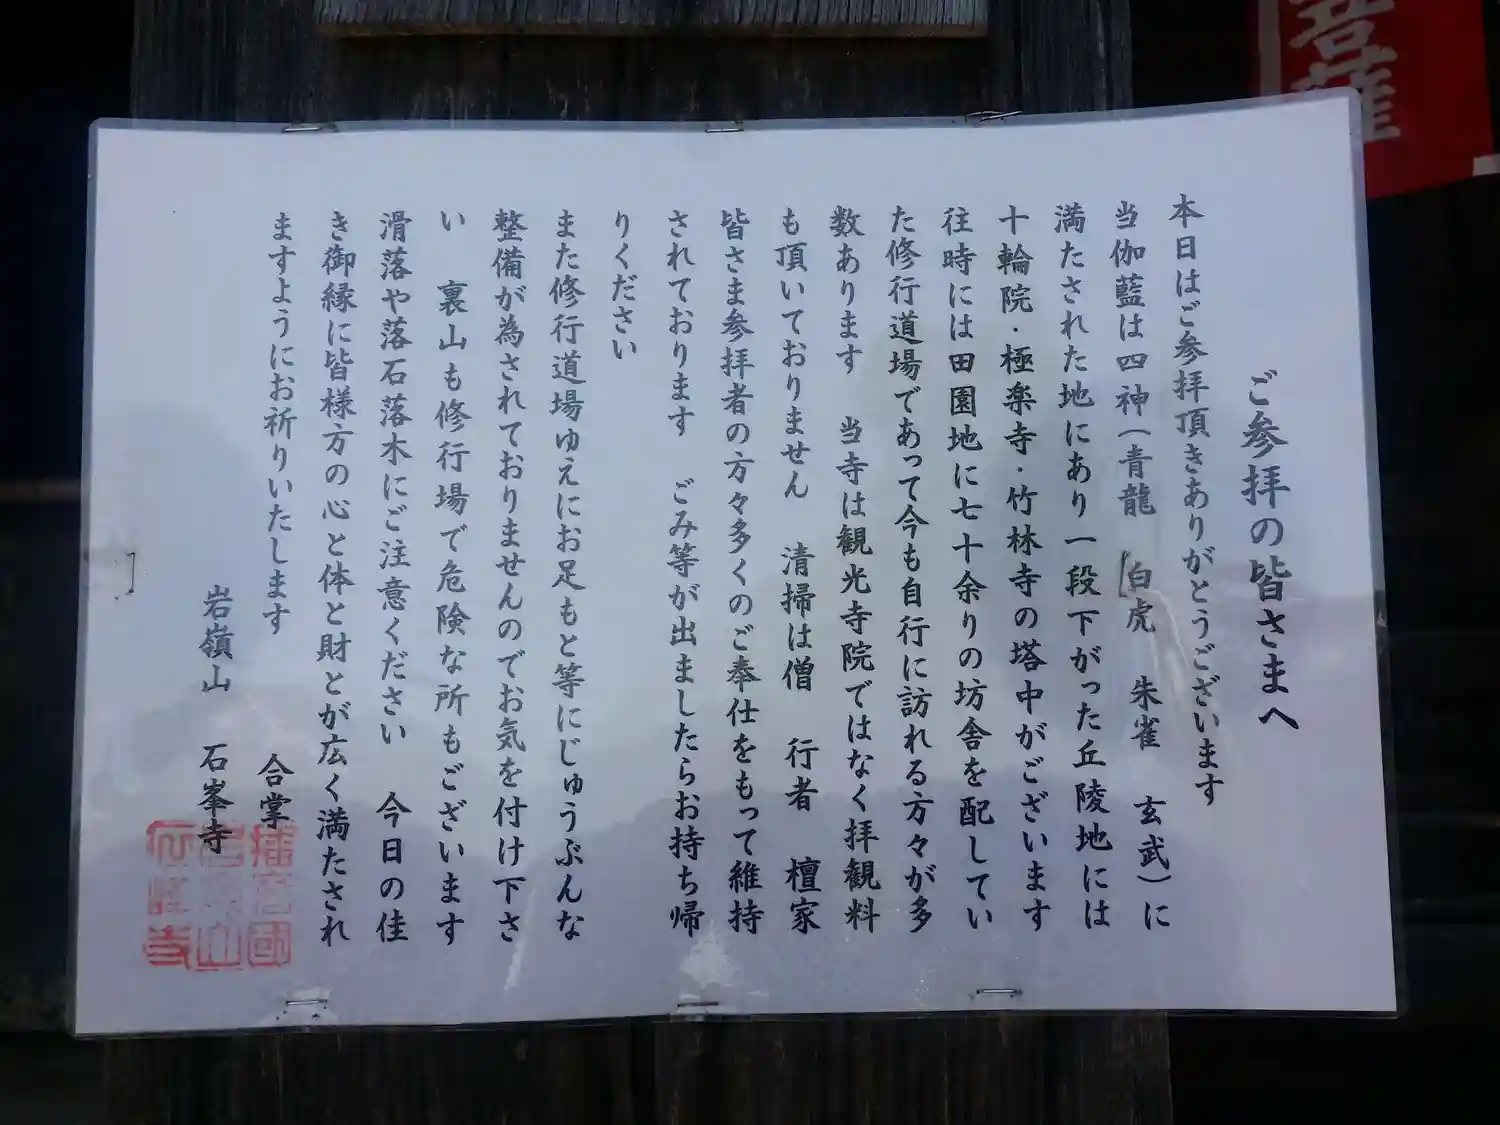 ご参拝の皆さまへ
本日はご参拝頂きありがとうございます
当伽藍は四神(青龍 白虎 朱雀 玄武)に
満たされた地にあり一段下がった丘陵地には
十輪院・極楽寺・竹林寺の塔中がございます
往時には田園地に七十余りの坊舎を配してい
た修行道場であって今も自行に訪れる方々が多
数あります 当寺は観光寺院ではなく拝観料
も頂いておりません 清掃は僧 行者 檀家
皆さま参拝者の方々多くのご奉仕をもって維持
されております ごみ等が出ましたらお持ち帰
りください
また修行道場ゆえにお足もと等にじゅうぶんな
整備が為されておりませんのでお気を付け下さ
い 裏山も修行場で危険な所もございます
滑落や落石落木にご注意ください 今日の佳
き御縁に皆様方の心と体と財とが広く満たされ
ますようにお祈りいたします
合掌
岩嶺山 石峯寺
菩薩